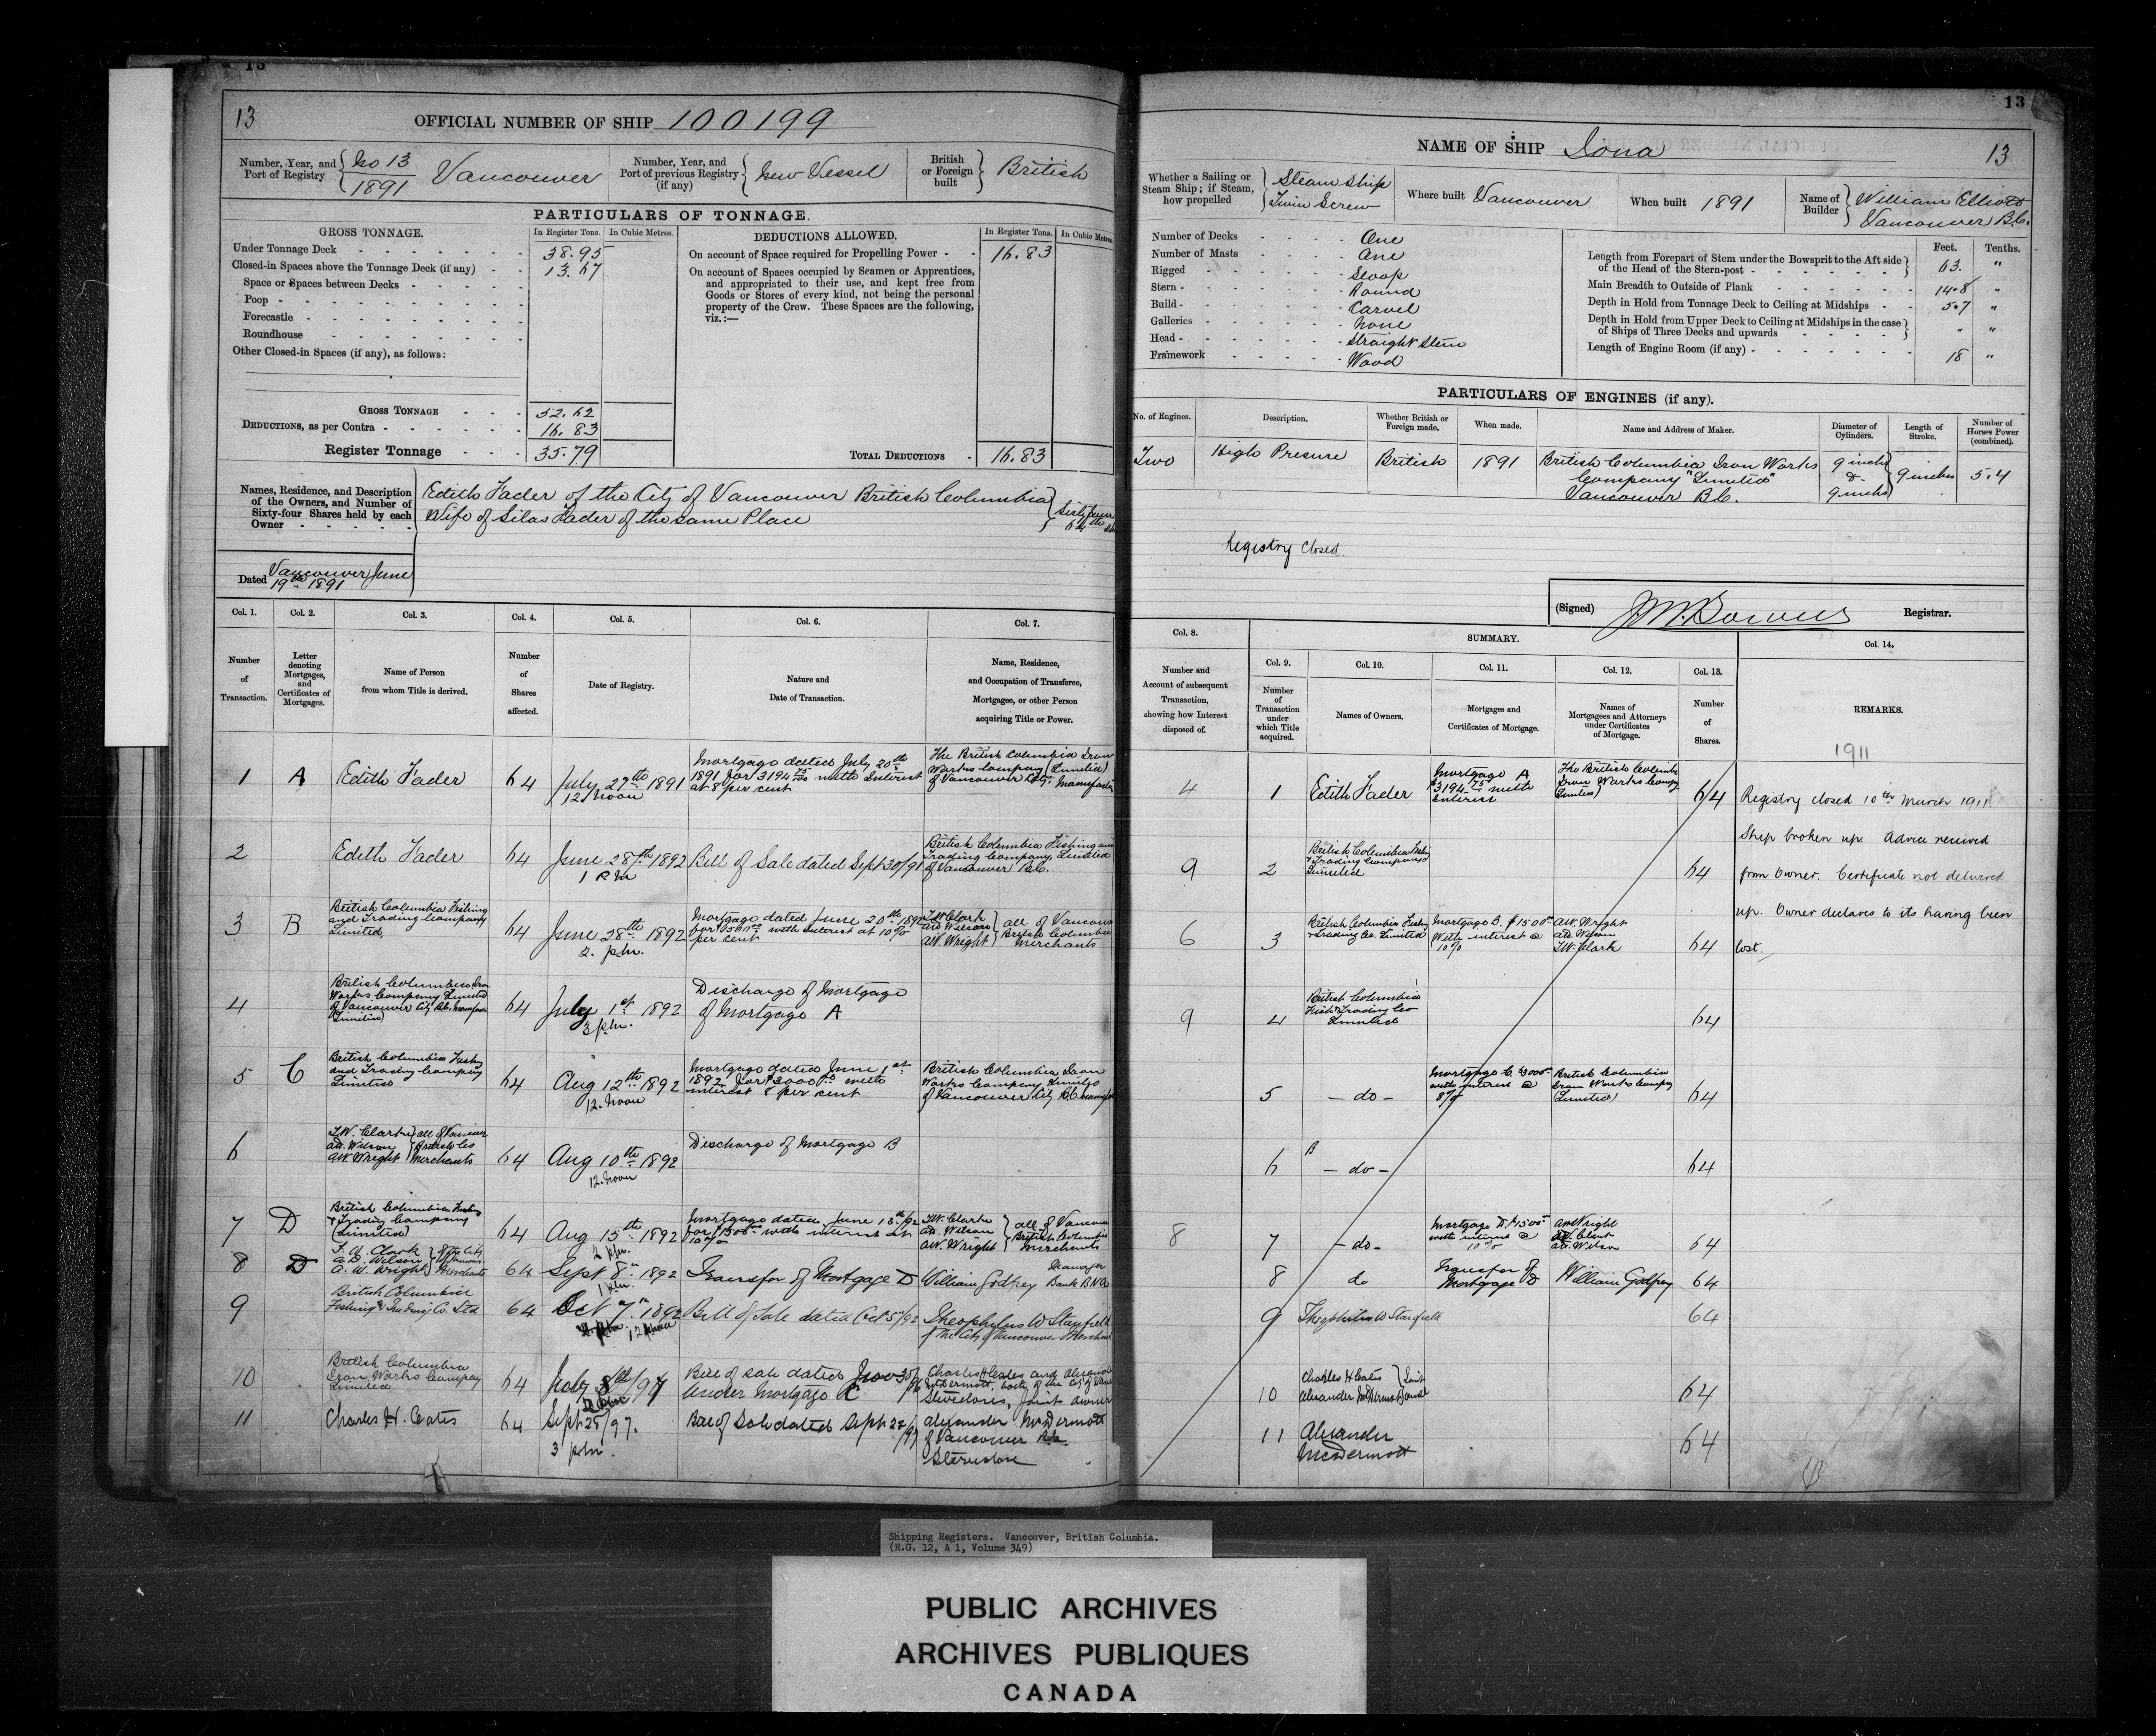 13
OFFICIAL NUMBER OF SHIP 100199
Number, Year, and Port of Registry No 13 1891 Vancouver
Number, Year, and Port of previous Registry (if any) New Vessel
British or Foreign built British
PARTICULARS OF TONNAGE.
GROSS TONNAGE. In Register Tons. In Cubic Metres.
Under Tonnage Deck 38.95
Closed-in Spaces above the Tonnage Deck (if any) 13.67
Space or Spaces between Decks
Poop
Forecastle
Roundhouse
Other Closed-in Spaces (if any), as follows:
GROSS TONNAGE 52.62
DEDUCTIONS, as per Contra 16.83
Register Tonnage 35.79
DEDUCTIONS ALLOWED. In Register Tons. In Cubic Metres.
On account of Space required for Propelling Power 16.83
On account of Spaces occupied by Seamen or Apprentices,
and appropriated to their use, and kept free from
Goods or Stores of every kind, not being the personal
property of the Crew. These Spaces are the following,
viz.:—
TOTAL DEDUCTIONS 16.83
Names, Residence, and Description
of the Owners, and Number of
Sixty-four Shares held by each
Owner
Edith Fader of the City of Vancouver British Columbia
Wife of Silas Fader of the same Place
Sixty four
64
Dated Vancouver June
19th 1891
Col. 1. Col. 2. Col. 3. Col. 4. Col. 5. Col. 6. Col. 7.
Number of Transaction.
Letter denoting Mortgages, and Certificates of Mortgages.
Name of Person from whom Title is derived.
Number of Shares affected.
Date of Registry.
Nature and Date of Transaction.
Name, Residence, and Occupation of Transferee, Mortgagee, or other Person acquiring Title or Power.
1 A Edith Fader 64 July 27th 1891 12 Noon
Mortgage dated July 20th
1891 for 3194 75/100 with Interest
at 8 per cent
The British Columbia Iron
Works Company (Limited)
of Vancouver City
2 Edith Fader 64 June 28th 1892 1 P.M Bill of Sale dated Sept 30/91
British Columbia Fishing and
Trading Company Limited
of Vancouver B.C.
3 B British Columbia Fishing
and Trading Company
Limited,
64 June 28th 1892 2. pm.
Mortgage dated June 20th 1892
for 1500 with Interest at 10%
per cent
T.W. Clark
A.D. Wilson
A.W. Wright
all of Vancouver
British Columbia
Merchants
4 British Columbia Iron
Works Company Limited
of Vancouver City B.C.
64 July 1st 1892 3 pm.
Discharge of Mortgage
of Mortgage A
5 C British Columbia Fishing
and Trading Company
Limited
64 Aug 12th 1892 12. Noon
Mortgage dated June 1st
1892 for $3000 with
interest 8 per cent
British Columbia Iron
Works Company Limited
of Vancouver City B.C.
6 T.W. Clark
A.D. Wilson
A.W. Wright
Merchants
64 Aug 10th 1892 12. Noon
Discharge of Mortgage B
7 D British Columbia Fishing
& Trading Company
(Limited)
64 Aug 15th 1892
Mortgage dated June 18th/92
for 1500 with interest at
10%
T.W. Clark
A.D. Wilson
A.W. Wright
all of Vancouver
British Columbia
Merchants
8 D T. W. Clark
A. D. Wilson
A. W. Wright
64 Sept 8th 1892 1 pm. Transfer of Mortgage D William Godfrey Manager Bank B N A
9 British Columbia
Fishing & Trading Co. Ltd
64 Oct 7th 1892 12 Noon Bill of Sale dated Oct 5/92
Theophilus W Stanfield
of the City of Vancouver Merchant
10 British Columbia
Iron Works Company
Limited
64 July 8th/97
Bill of Sale dated
under Mortgage C
Charles H Cates and
both of the City of
Stevedores, Joint Owners
11 Charles H. Cates 64 Sept 25/97. 3 pm.
Bill of Sale dated Sept 22/97
Alexander McDermott
of Vancouver B.C.
Stevedore
13
NAME OF SHIP Iona 13
Whether a Sailing or Steam Ship; if Steam, how propelled
Steam Ship
Twin Screw
Where built Vancouver
When built 1891
Name of Builder William Elliott
Vancouver B.C.
Number of Decks One
Number of Masts One
Rigged Sloop
Stern Round
Build Carvel
Galleries None
Head Straight Stem
Framework Wood
Feet. Tenths.
Length from Forepart of Stem under the Bowsprit to the Aft side
of the Head of the Stern-post 63. "
Main Breadth to Outside of Plank 14.8 "
Depth in Hold from Tonnage Deck to Ceiling at Midships 5.7 "
Depth in Hold from Upper Deck to Ceiling at Midships in the case
of Ships of Three Decks and upwards " "
Length of Engine Room (if any) 18 "
PARTICULARS OF ENGINES (if any).
No. of Engines. Description. Whether British or Foreign made. When made. Name and Address of Maker. Diameter of Cylinders. Length of Stroke. Number of Horses Power (combined).
Two High Presure British 1891
British Columbia Iron Works
Company "Limited"
Vancouver B.C.
9 inches
&
9 inches
9 inches 5.4
Registry Closed.
(Signed) Registrar.
Col. 8. SUMMARY. Col. 14.
Col. 9. Col. 10. Col. 11. Col. 12. Col. 13.
Number and Account of subsequent Transaction, showing how Interest disposed of.
Number of Transaction under which Title acquired.
Names of Owners.
Mortgages and Certificates of Mortgage.
Names of Mortgagees and Attorneys under Certificates of Mortgage.
Number of Shares.
REMARKS.
1911
4 1 Edith Fader
Mortgage A
$3194 75 with
Interest
The British Columbia
Iron Works Company
Limited)
64
Registry closed 10th March 1911.
Ship broken up. Advice received
from Owner. Certificate not delivered
up. Owner declares to its having been
lost.
9 2
British Columbia Fishing
& Trading Company
Limited
64
6 3
British Columbia Fishing
& Trading Co. Limited
Mortgage B. $1500
With interest @
10%
A.W. Wright
A.D. Wilson
T.W. Clark
64
9 4
British Columbia
Fish & Trading Co
Limited
64
5 — do —
Mortgage C $3000
with interest @
8%
British Columbia
Iron Works Company
(Limited)
64
6 B — do — 64
8 7 — do —
Mortgage D. $1500
with interest @
10%
A.W. Wright
T.W. Clark
A.D. Wilson
64
8 do
Transfer of
Mortgage D
William Godfrey 64
9 Theophilus W Stanfield 64
10 Charles H Cates
Alexander McDermott
Joint
64
11 Alexander
McDermott
64
Shipping Registers. Vancouver, British Columbia.
(R.G. 12, A 1, Volume 349)
PUBLIC ARCHIVES
ARCHIVES PUBLIQUES
CANADA